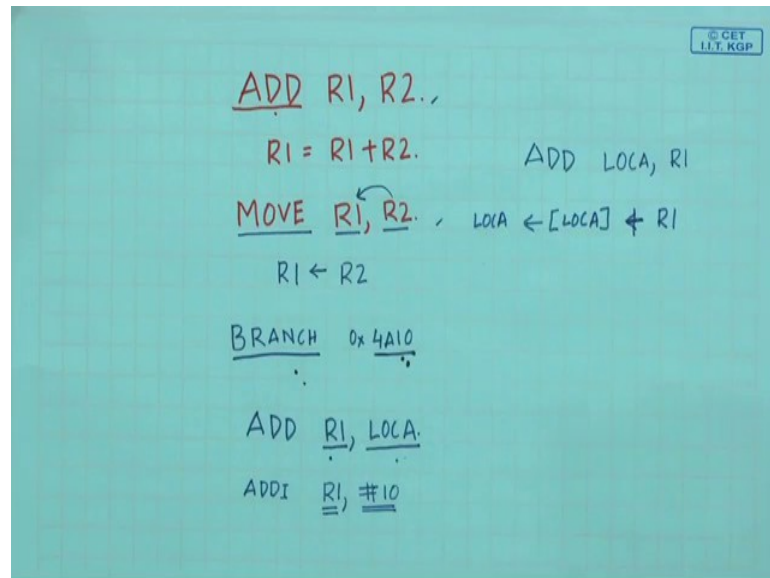 © CET
I.I.T. KGP
ADD R1, R2.,
R1 = R1 + R2.
ADD LOCA, R1
MOVE R1, R2. ,
LOCA ← [LOCA] + R1
R1 ← R2
BRANCH 0x 4A10
ADD R1, LOCA.
ADDI R1, #10